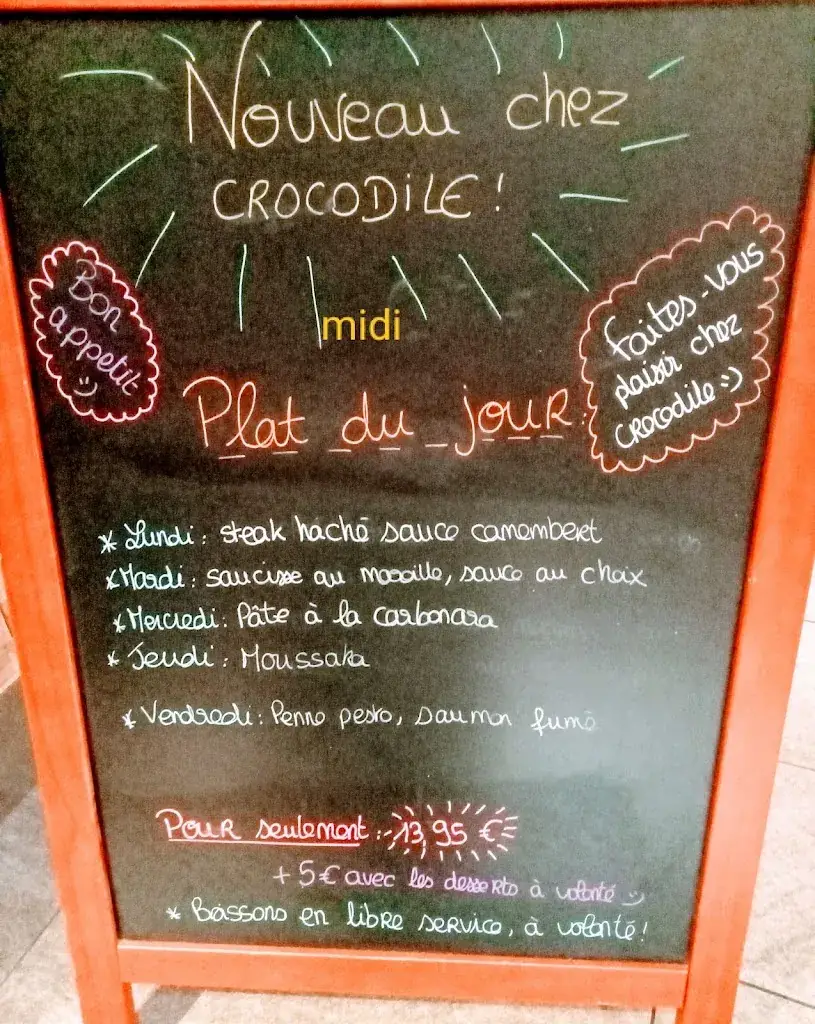 Nouveau chez
CROCODILE!
Bon
appetit
:)
midi
Faites-vous
plaisir chez
crocodile :)
Plat du jour:
* Lundi: steak haché sauce camembert
* Mardi: saucisse au maroille, sauce au choix
* Mercredi: Pâte à la carbonara
* Jeudi: Moussaka
* Vendredi: Penne pesto, saumon fumé
Pour seulement: 13,95 €
+ 5€ avec les desserts à volonté :)
* Boissons en libre service, à volonté!